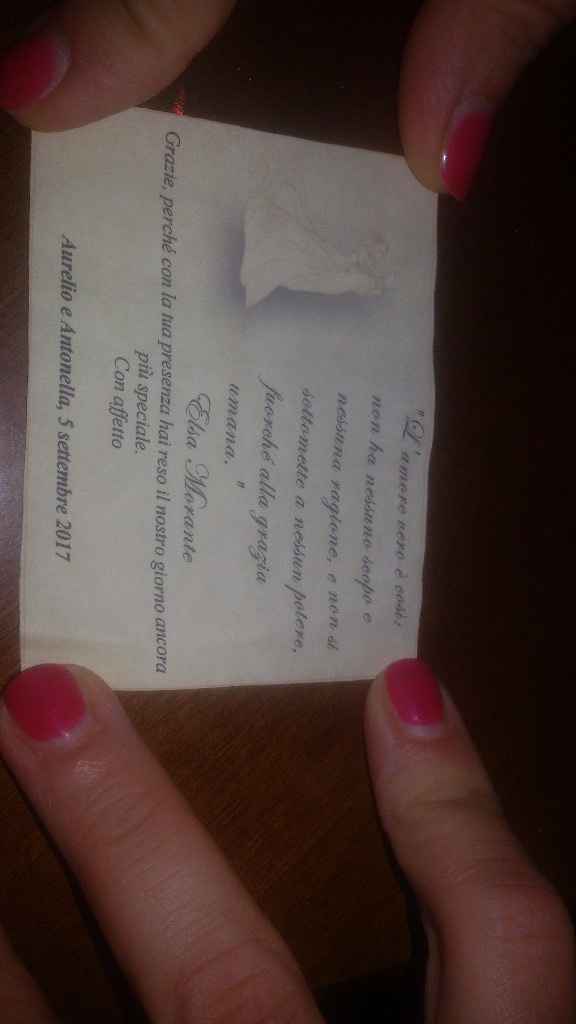 "L'amore vero è così:
non ha nessuno scopo e
nessuna ragione, e non si
sottomette a nessun potere,
fuorché alla grazia
umana. "
Elsa Morante
Grazie, perché con la tua presenza hai reso il nostro giorno ancora
più speciale.
Con affetto
Aurelio e Antonella, 5 settembre 2017